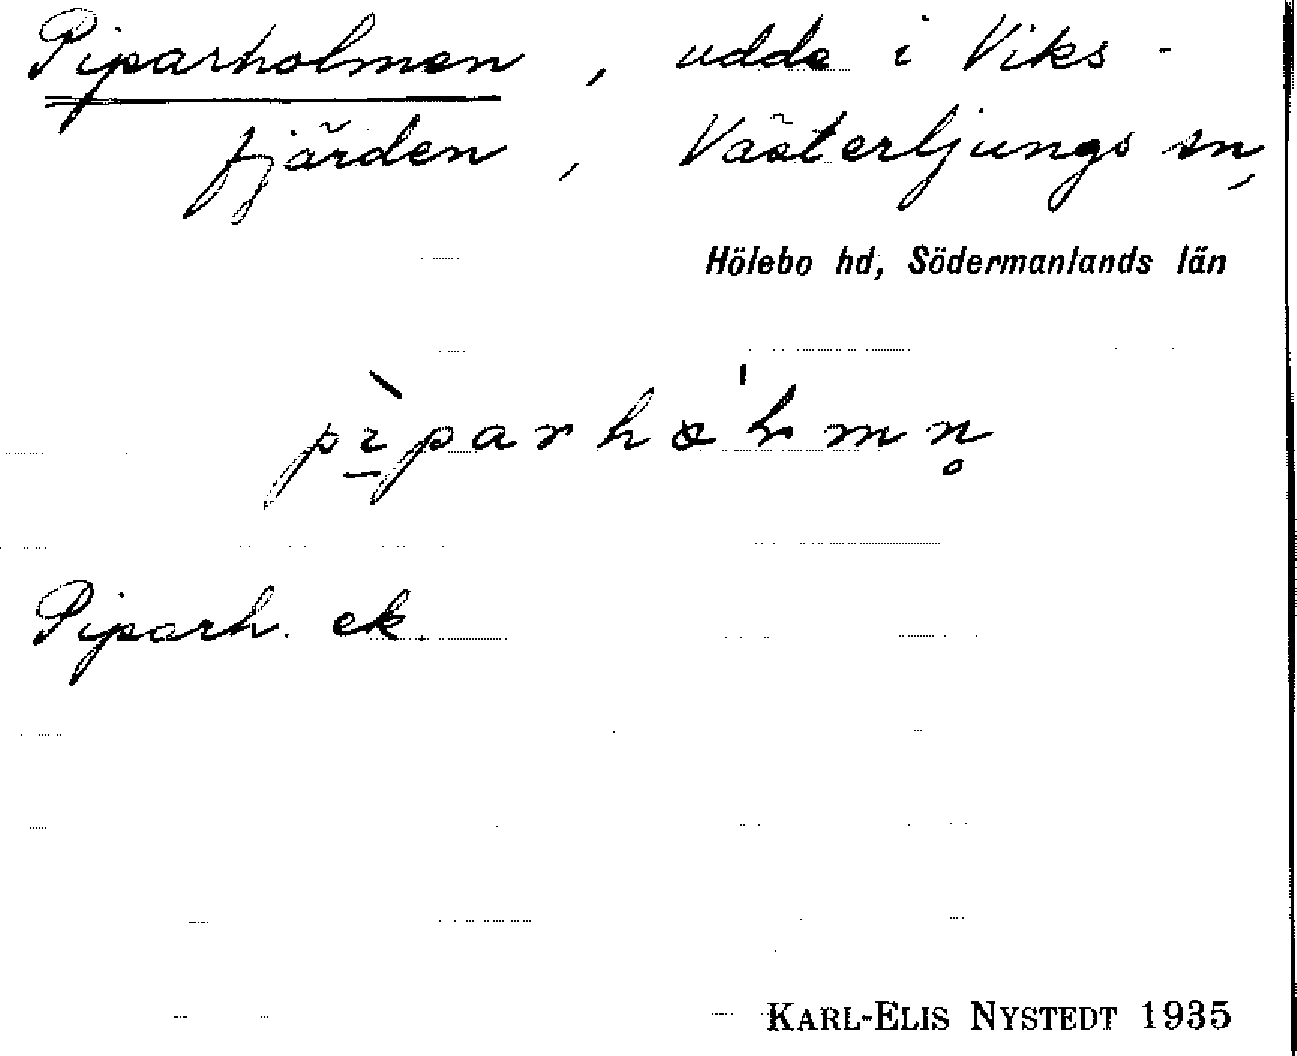 Piparholmen, udde i Viks-
fjärden, Västerljungs sn,
Hölebo hd, Södermanlands län
Piparh. ek.
KARL-ELIS NYSTEDT 1935